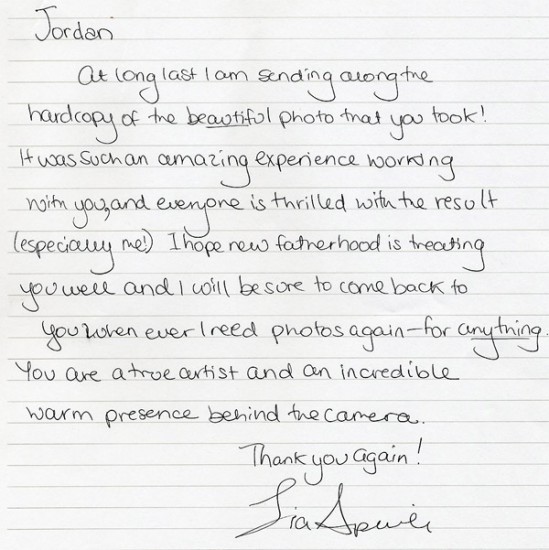 Jordan
At long last I am sending along the
hardcopy of the beautiful photo that you took!
It was such an amazing experience working
with you, and everyone is thrilled with the result
(especially me!) I hope new fatherhood is treating
you well and I will be sure to come back to
you when ever I need photos again - for anything.
You are a true artist and an incredible
warm presence behind the camera.
Thank you again!
Lia